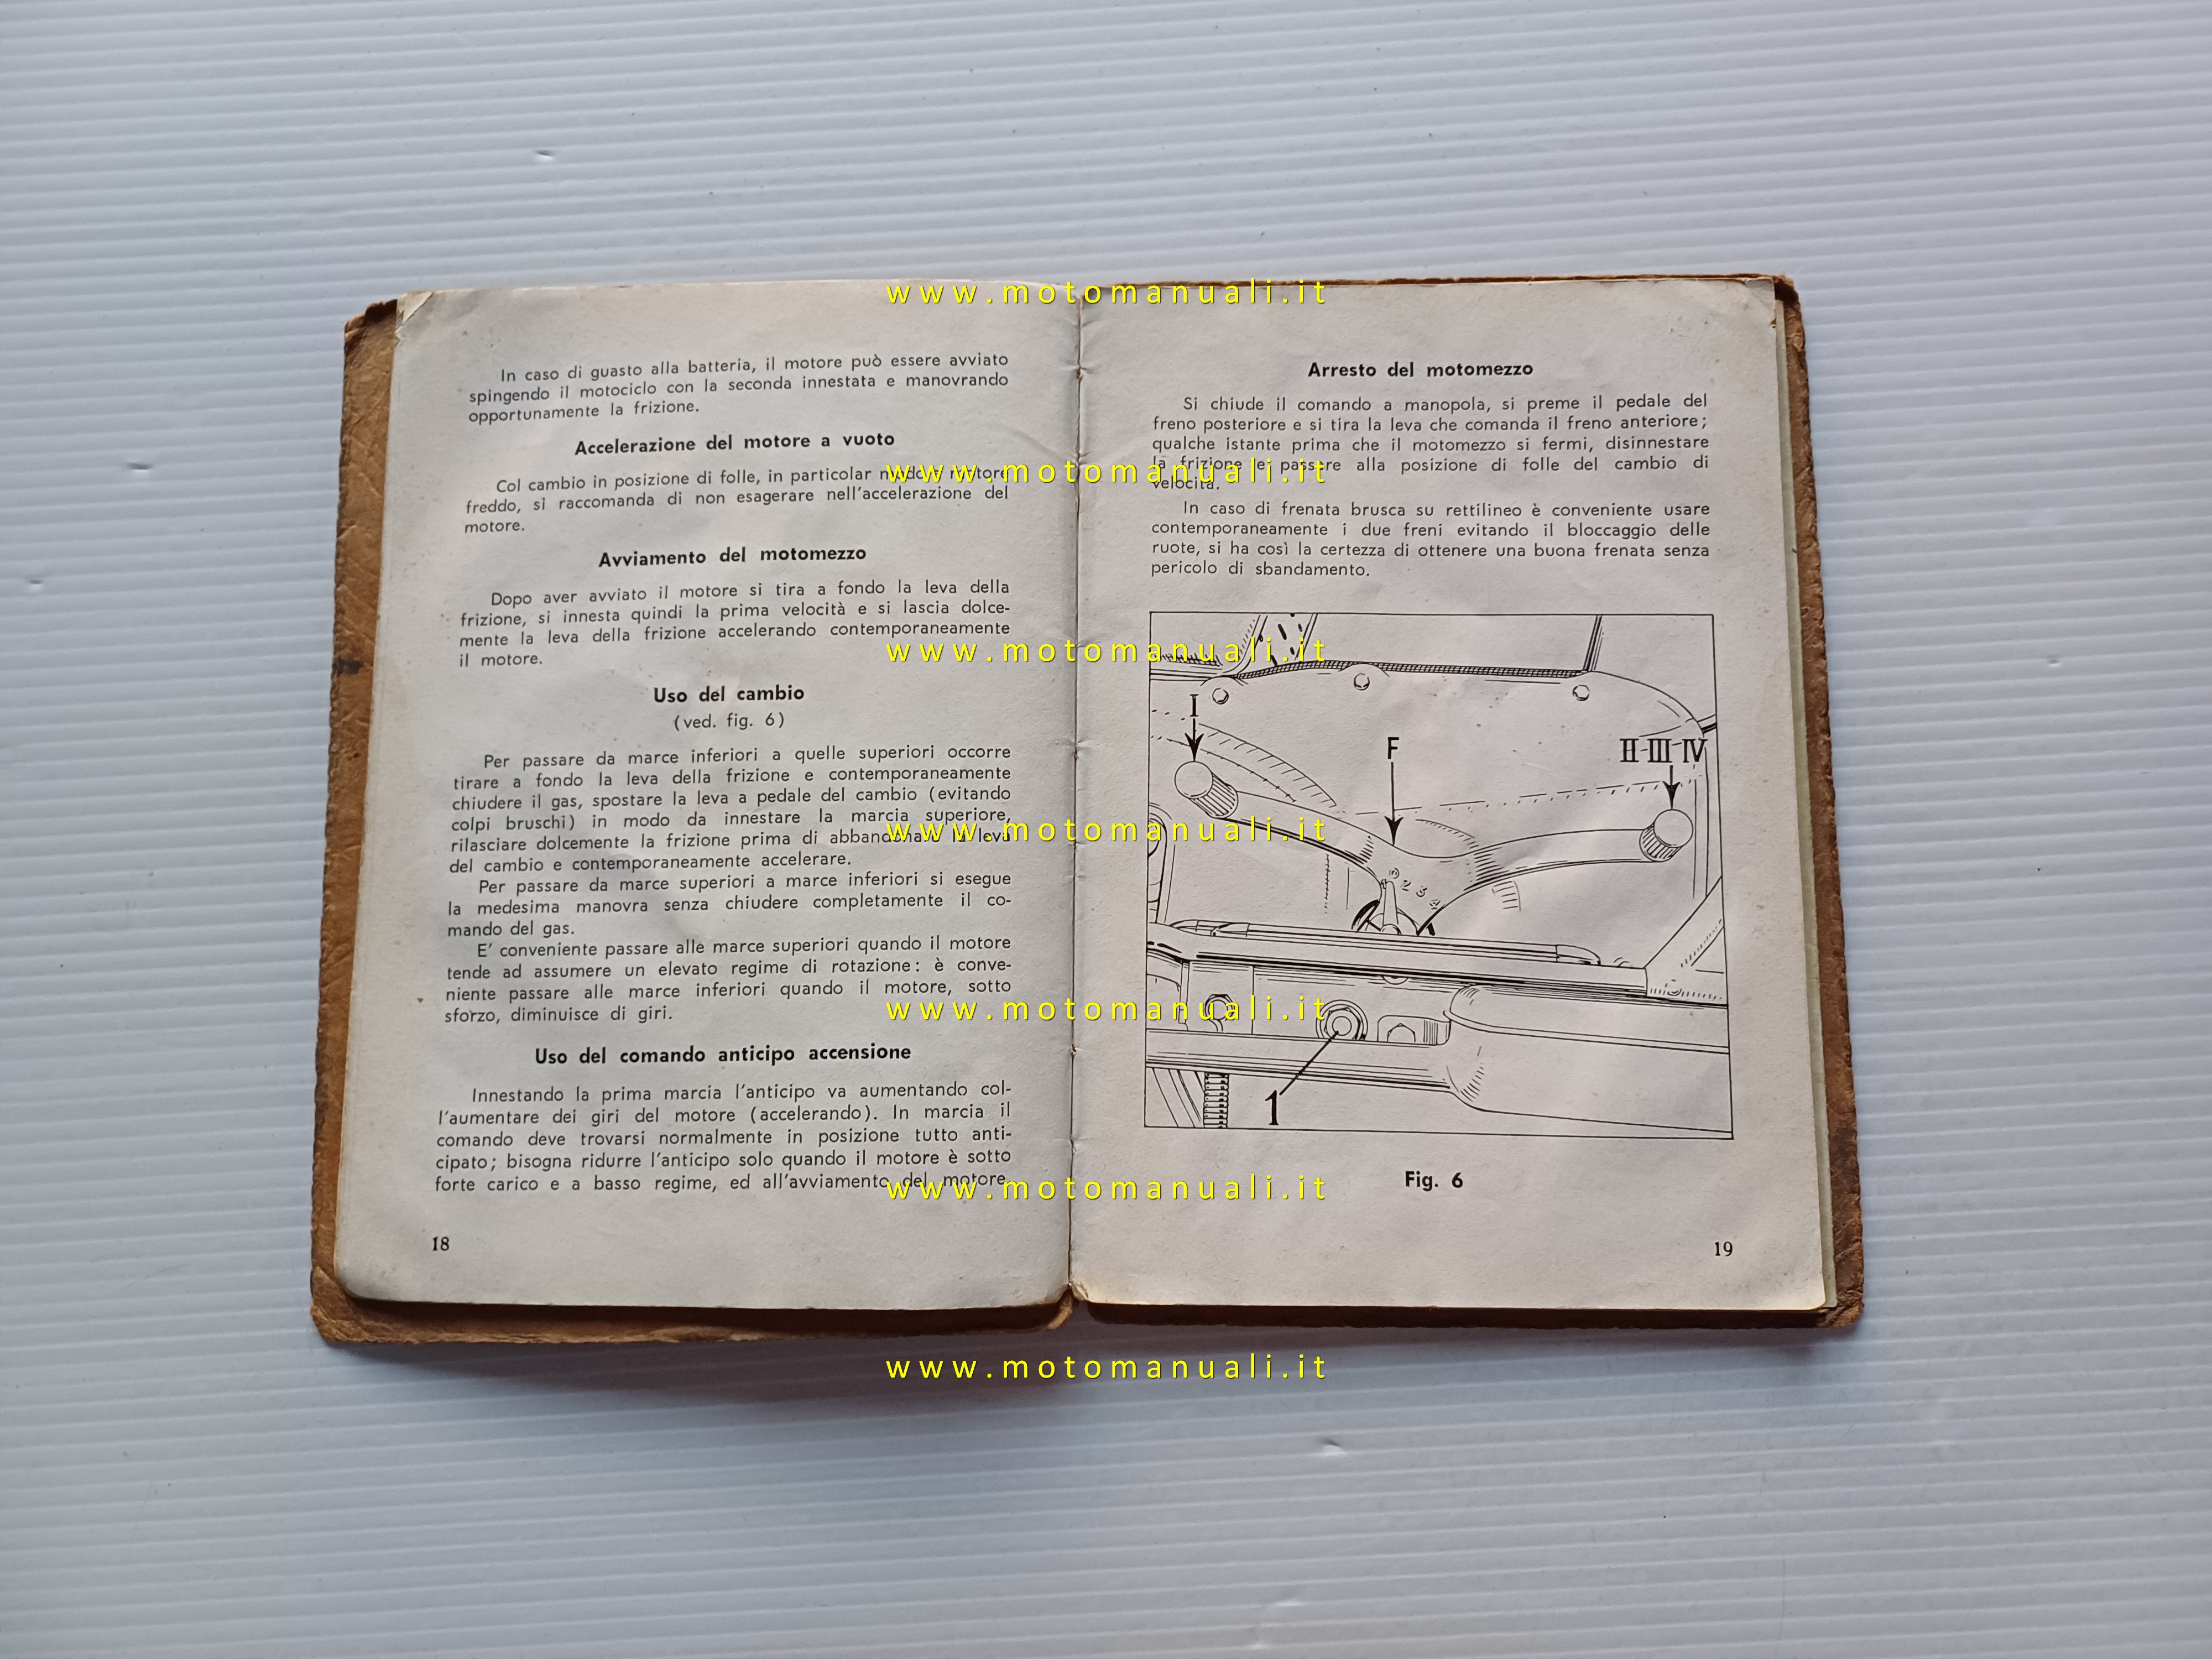 In caso di guasto alla batteria, il motore può essere avviato
spingendo il motociclo con la seconda innestata e manovrando
opportunamente la frizione.
Accelerazione del motore a vuoto
Col cambio in posizione di folle, in particolar modo a motore
freddo, si raccomanda di non esagerare nell'accelerazione del
motore.
Avviamento del motomezzo
Dopo aver avviato il motore si tira a fondo la leva della
frizione, si innesta quindi la prima velocità e si lascia dolce-
mente la leva della frizione accelerando contemporaneamente
il motore.
Uso del cambio
(ved. fig. 6)
Per passare da marce inferiori a quelle superiori occorre
tirare a fondo la leva della frizione e contemporaneamente
chiudere il gas, spostare la leva a pedale del cambio (evitando
colpi bruschi) in modo da innestare la marcia superiore,
rilasciare dolcemente la frizione prima di abbandonare la leva
del cambio e contemporaneamente accelerare.
Per passare da marce superiori a marce inferiori si esegue
la medesima manovra senza chiudere completamente il co-
mando del gas.
E' conveniente passare alle marce superiori quando il motore
tende ad assumere un elevato regime di rotazione: è conve-
niente passare alle marce inferiori quando il motore, sotto
sforzo, diminuisce di giri.
Uso del comando anticipo accensione
Innestando la prima marcia l'anticipo va aumentando col-
l'aumentare dei giri del motore (accelerando). In marcia il
comando deve trovarsi normalmente in posizione tutto anti-
cipato; bisogna ridurre l'anticipo solo quando il motore è sotto
forte carico e a basso regime, ed all'avviamento del motore.
18
Arresto del motomezzo
Si chiude il comando a manopola, si preme il pedale del
freno posteriore e si tira la leva che comanda il freno anteriore;
qualche istante prima che il motomezzo si fermi, disinnestare
la frizione e passare alla posizione di folle del cambio di
velocità.
In caso di frenata brusca su rettilineo è conveniente usare
contemporaneamente i due freni evitando il bloccaggio delle
ruote, si ha così la certezza di ottenere una buona frenata senza
pericolo di sbandamento.
I
F
II-III-IV
2 3 4
1
Fig. 6
19
www.motomanuali.it
www.motomanuali.it
www.motomanuali.it
www.motomanuali.it
www.motomanuali.it
www.motomanuali.it
www.motomanuali.it